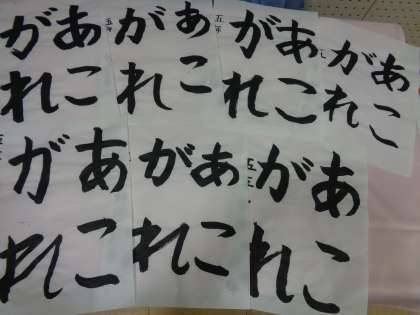 あこ
がれ
あこ
がれ
五年
あこ
がれ
五年
あこ
がれ
あこ
がれ
あこ
がれ
あこ
がれ